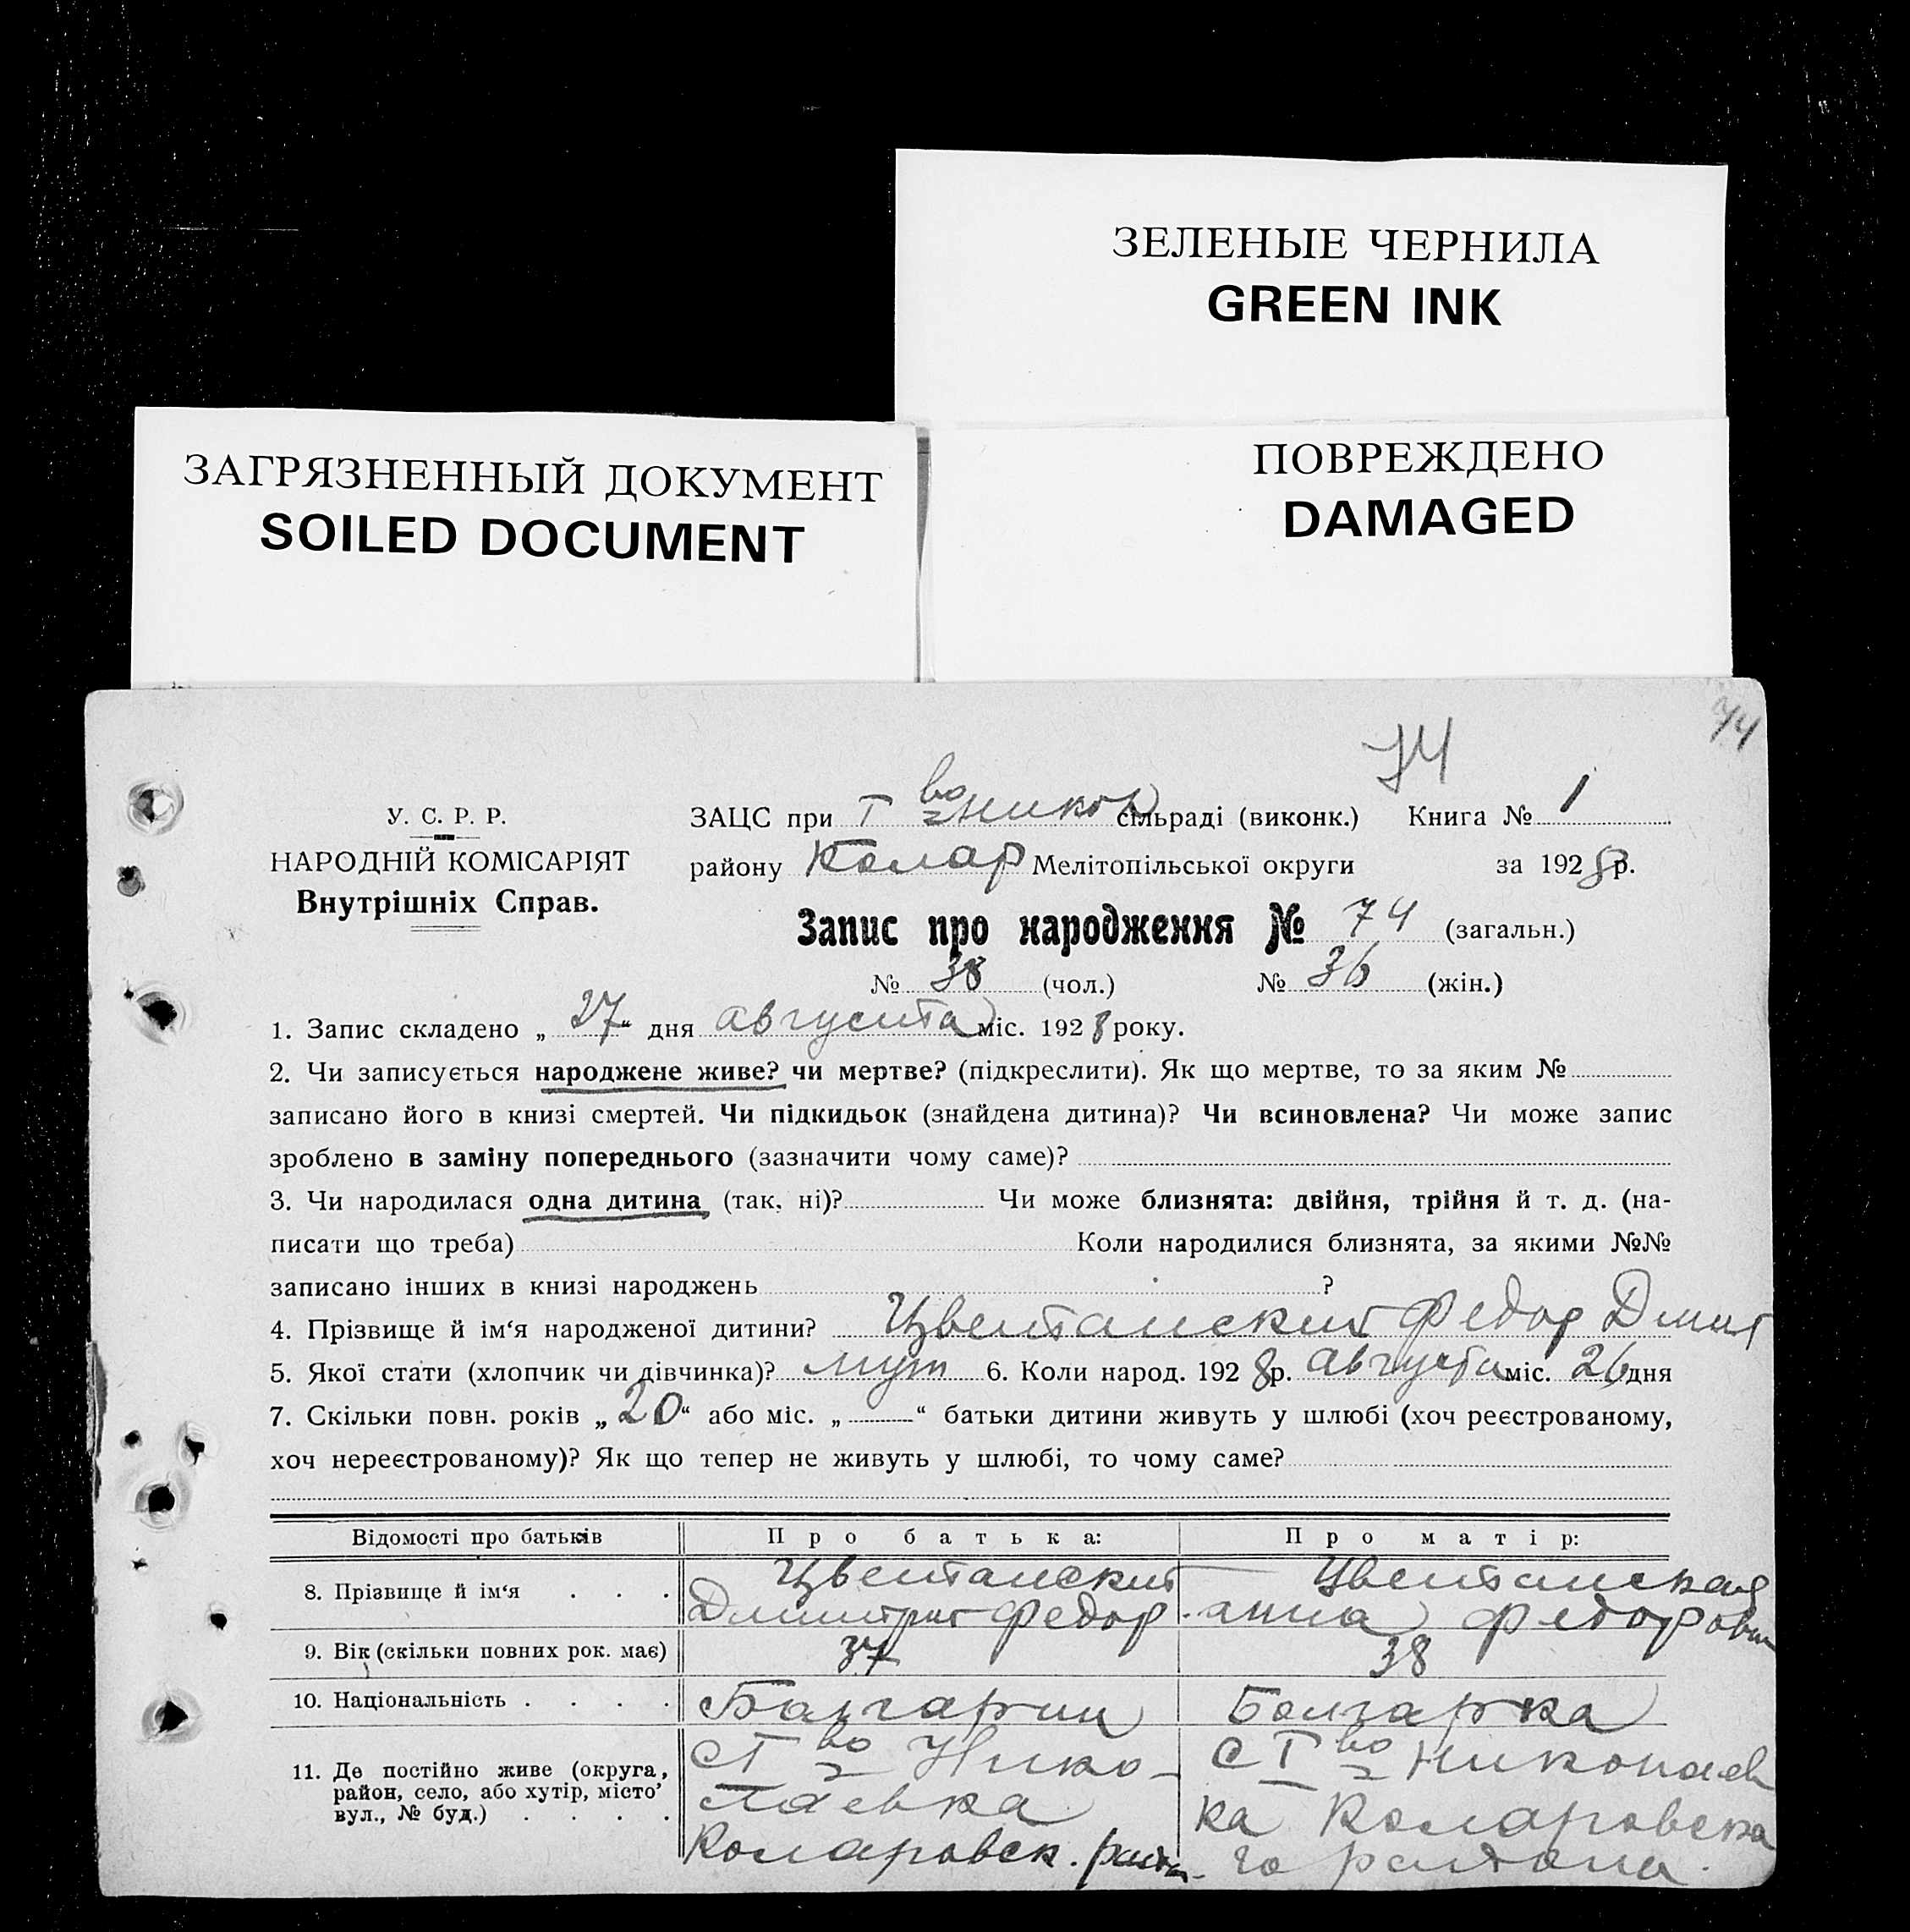 ЗЕЛЕНЫЕ ЧЕРНИЛА
GREEN INK
ЗАГРЯЗНЕННЫЙ ДОКУМЕНТ
SOILED DOCUMENT
ПОВРЕЖДЕНО
DAMAGED
74
74
У. С. Р. Р.
НАРОДНІЙ КОМІСАРІЯТ
Внутрішніх Справ.
ЗАЦС при I во Никол сільраді (виконк.) Книга № 1
району Колар Мелітопільської округи за 1928 р.
Запис про народження № 74 (загальн.)
№ 38 (чол.) № 36 (жін.)
1. Запис складено „27“ дня августа міс. 1928 року.
2. Чи записується народжене живе? чи мертве? (підкреслити). Як що мертве, то за яким №
записано його в книзі смертей. Чи підкидьок (знайдена дитина)? Чи всиновлена? Чи може запис
зроблено в заміну попереднього (зазначити чому саме)?
3. Чи народилася одна дитина (так, ні)? Чи може близнята: двійня, трійня й т. д. (на-
писати що треба) Коли народилися близнята, за якими №№
записано інших в книзі народжень ?
4. Прізвище й ім‘я народженої дитини? Цветанский Федор Дмит
5. Якої стати (хлопчик чи дівчинка)? муж 6. Коли народ. 1928 р. августа міс. 26 дня
7. Скільки повн. років „20“ або міс. „ “ батьки дитини живуть у шлюбі (хоч реєстрованому,
хоч нереєстрованому)? Як що тепер не живуть у шлюбі, то чому саме?
Відомості про батьків Про батька: Про матір:
8. Прізвище й ім‘я . . . Цветанский Цветанская
Дмитрий Федор. анна Федоровн
9. Вік (скільки повних рок. має) 37 38
10. Національність . . . . Болгарин Болгарка
11. Де постійно живе (округа, район, село, або хутір, місто’ вул., № буд.) . . . .
с I во Нико-
лаевка
Коларовск. район
с I во Николаев
ка Коларовска
го района.